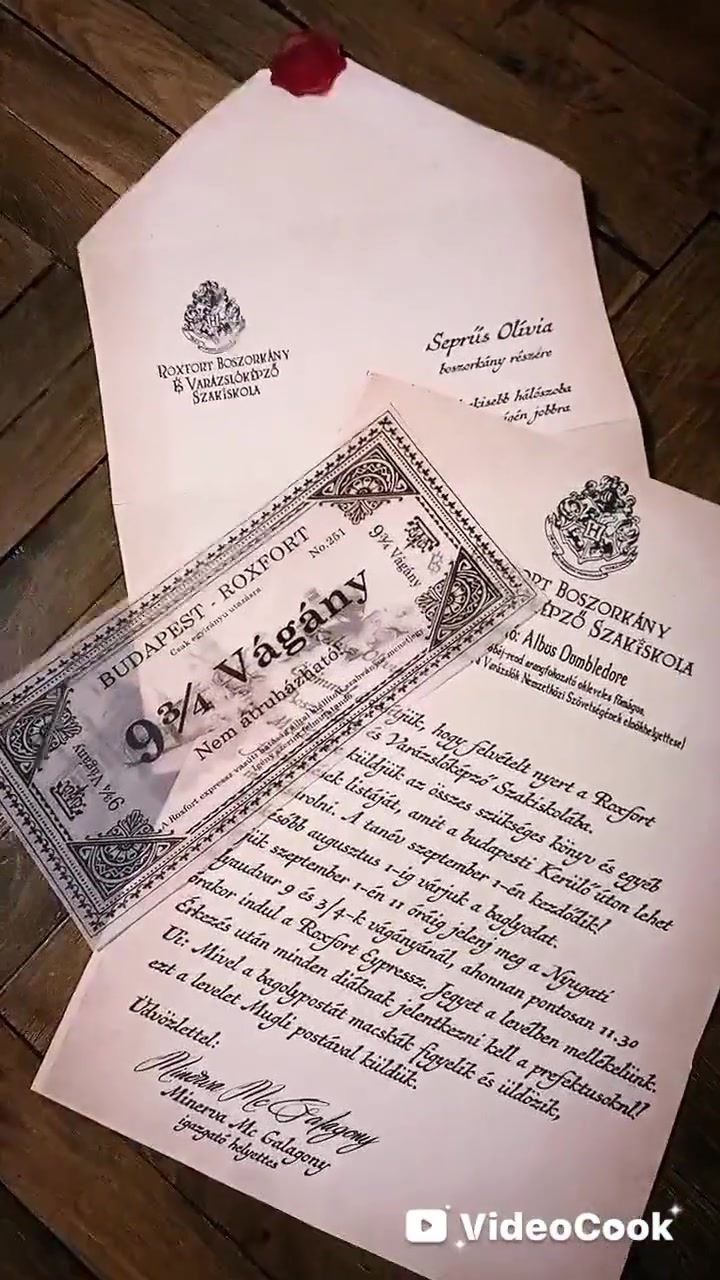 ROXFORT BOSZORKÁNY
ÉS VARÁZSLÓKÉPZŐ
SZAKISKOLA
Seprűs Olívia
boszorkány részére
kisebb hálószoba
jobbra
BUDAPEST - ROXFORT
No. 251
Csak egyirányú utazásra
9¾ Vágány
Nem átruházható!
9¾ Vágány
9¾ Vágány
BOSZORKÁNY
SZAKISKOLA
Albus Dumbledore
hogy felvételt nyert a Roxfort
és Varázslóképző Szakiskolába.
küldjük az összes szükséges könyv és egyéb
listáját, amit a budapesti Kerülő úton lehet
A tanév szeptember 1-én kezdődik!
augusztus 1-ig várjuk a baglyodat.
szeptember 1-én 11 óráig jelenj meg a Nyugati
9 és 3/4-k vágányánál, ahonnan pontosan 11.30
órakor indul a Roxfort Expressz. Jegyet a levélben mellékelünk.
Érkezés után minden diáknak jelentkezni kell a prefektusoknl!
Ui: Mivel a bagolypostát macskák figyelik és üldözik,
ezt a levelet Mugli postával küldjük.
Üdvözlettel:
Minerva Mc Galagony
Minerva Mc Galagony
igazgató helyettes
VideoCook